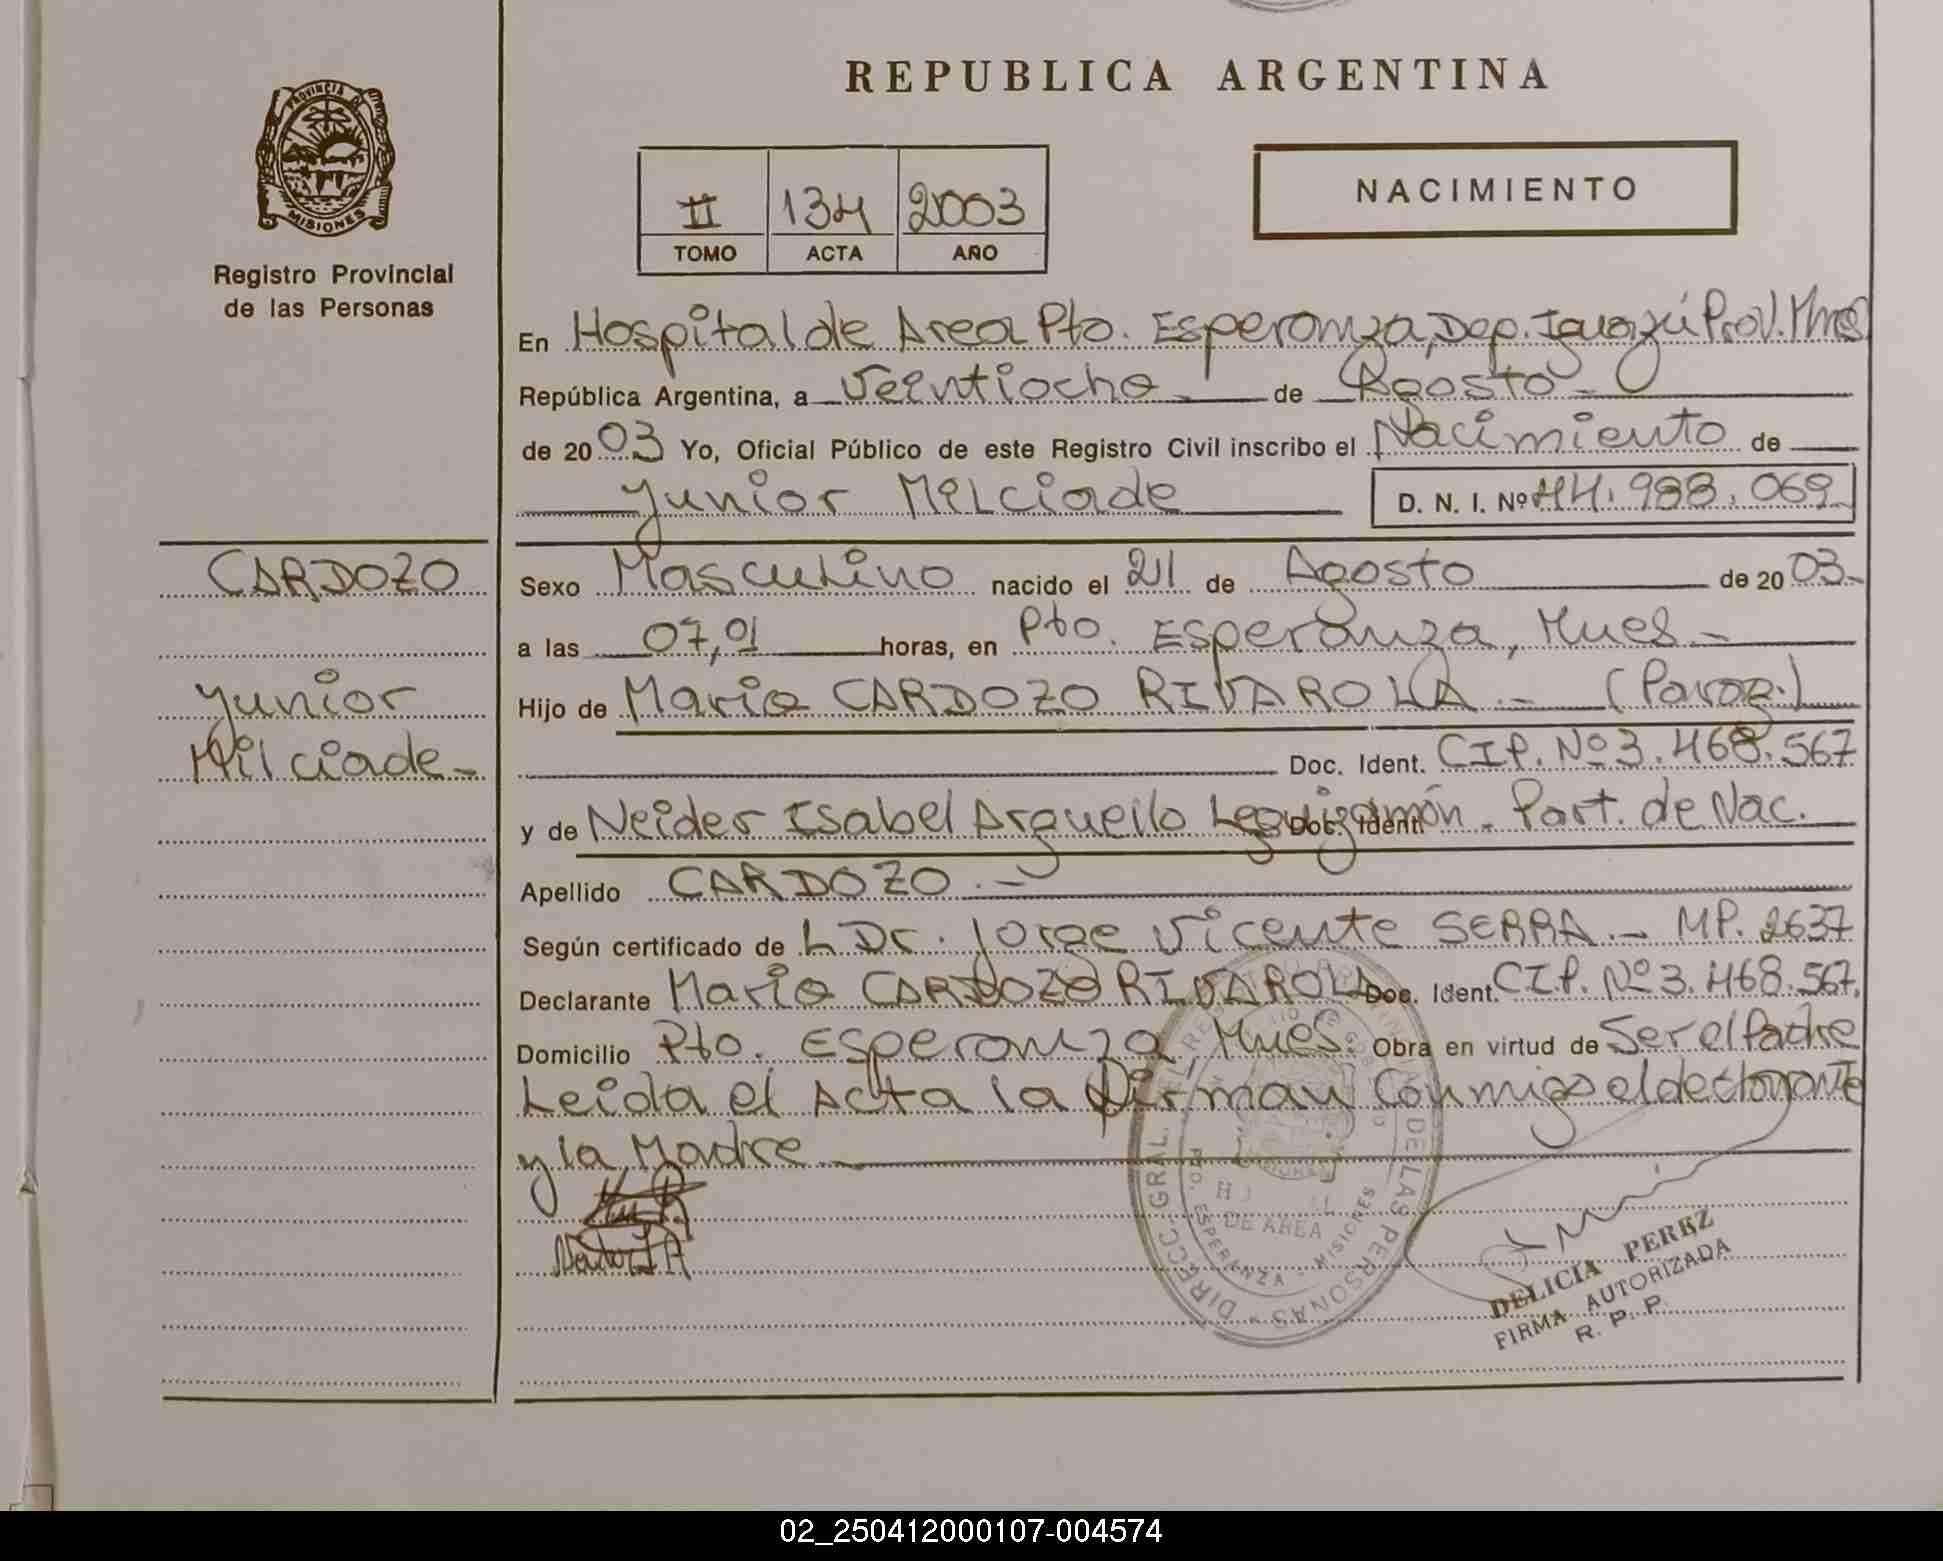 REPUBLICA ARGENTINA
PROVINCIA DE
MISIONES
Registro Provincial
de las Personas
II 134 2003
TOMO ACTA AÑO
NACIMIENTO
En Hospital de Area Pto. Esperanza, Dep. Iguazú Prov. Mnes
República Argentina, a Veintiocho de Agosto
de 2003 Yo, Oficial Público de este Registro Civil inscribo el Nacimiento de
Yunior Milciade D. N. I. Nº 44.988.069
CARDOZO
Yunior
Milciade
Sexo Masculino nacido el 21 de Agosto de 2003
a las 07,01 horas, en Pto. Esperanza, Mnes
Hijo de Mario CARDOZO RIVAROLA (Parag.)
Doc. Ident. CIP. Nº 3.468.567
y de Neider Isabel Arguello Leguizamón Doc. Ident. Part. de Nac.
Apellido CARDOZO
Según certificado de L Dr. Jorge Vicente SERRA MP. 2637
Declarante Mario CARDOZO RIVAROLA Doc. Ident. CIP. Nº 3.468.567
Domicilio Pto. Esperanza, Mnes. Obra en virtud de Ser el Padre
Leida el Acta la Firman Conmigo el declarante
y la Madre
DIRECC. GRAL. DE LAS PERSONAS
DE AREA
PTO. ESPERANZA - MISIONES
DELICIA PEREZ
FIRMA AUTORIZADA
R. P. P.
02_250412000107-004574